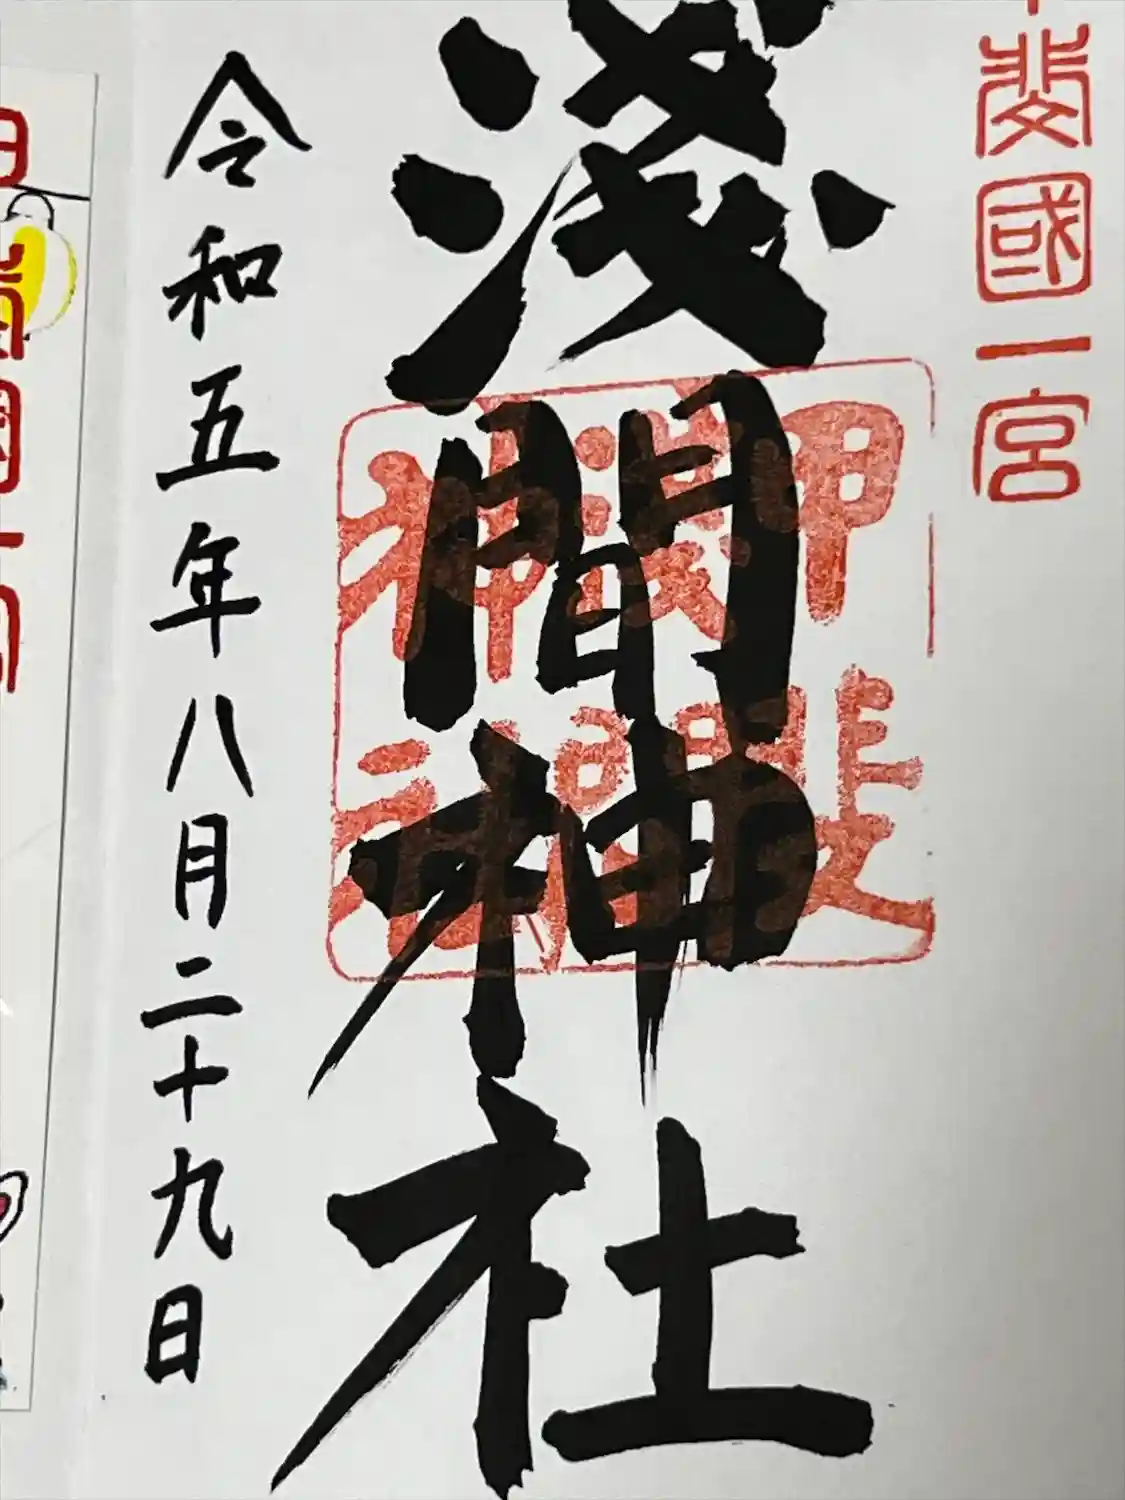 斐國一宮
淺間神社
甲斐
淺間
神社
令和五年八月二十九日